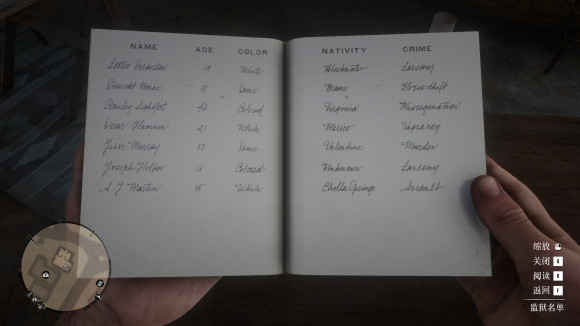 NAME AGE COLOR NATIVITY CRIME
Lester 19 White Larceny
Stewart 18 Same Horse theft
Stanley Lightfoot 42 Colored Virginia Miscegenation
21 White Mexico Vagrancy
Jesse Murray 53 Same Valentine Murder
Joseph 16 Colored Unknown Larceny
A. J. Martin 45 White Cholla Springs Assault
缩放
关闭
阅读
返回 F
监狱名单